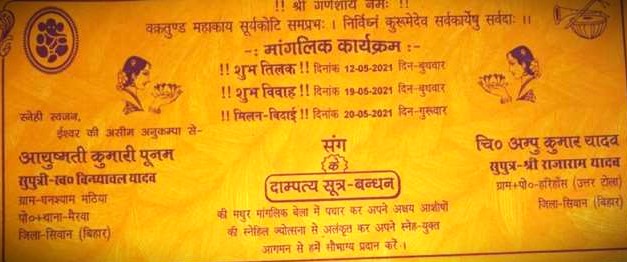 !! श्री गणेशाय नमः !!
वक्रतुण्ड महाकाय सूर्यकोटि समप्रभः । निर्विघ्नं कुरूमेदेव सर्वकार्येषु सर्वदाः ।।
-: मांगलिक कार्यक्रम :-
!! शुभ तिलक !! दिनांक 12-05-2021 दिन-बुधवार
!! शुभ विवाह !! दिनांक 19-05-2021 दिन-बुधवार
!! मिलन-बिदाई !! दिनांक 20-05-2021 दिन-गुरूवार
स्नेही स्वजन,
ईश्वर की असीम अनुकम्पा से-
आयुष्मती कुमारी पूनम
सुपुत्री-स्व० विन्ध्याचल यादव
ग्राम-घनश्याम मठिया
पो०+थाना-मैरवा
जिला-सिवान (बिहार)
संग
के
दाम्पत्य सूत्र-बन्धन
चि० अम्पु कुमार यादव
सुपुत्र-श्री राजाराम यादव
ग्राम+पो०-हरिहाँस (उत्तर टोला)
जिला-सिवान (बिहार)
की मधुर मांगलिक बेला में पधार कर अपने अक्षय आशीषों
की स्नेहिल ज्योत्सना से अलंकृत कर अपने स्नेह-युक्त
आगमन से हमें सौभाग्य प्रदान करें ।